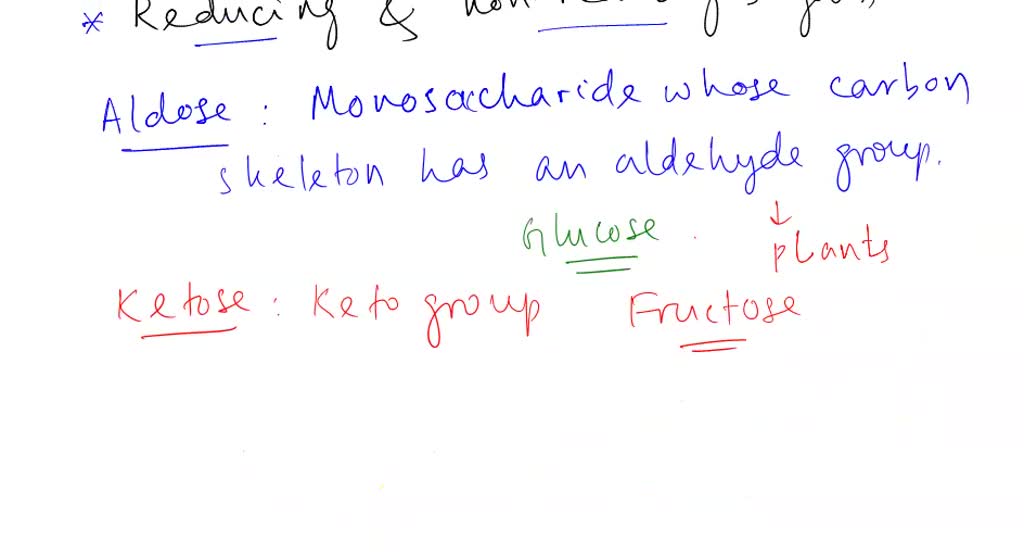 * Reducing & non
Aldose : Monosaccharide whose carbon
skeleton has an aldehyde group.
Glucose
↓
plants
Ketose : Keto group Fructose